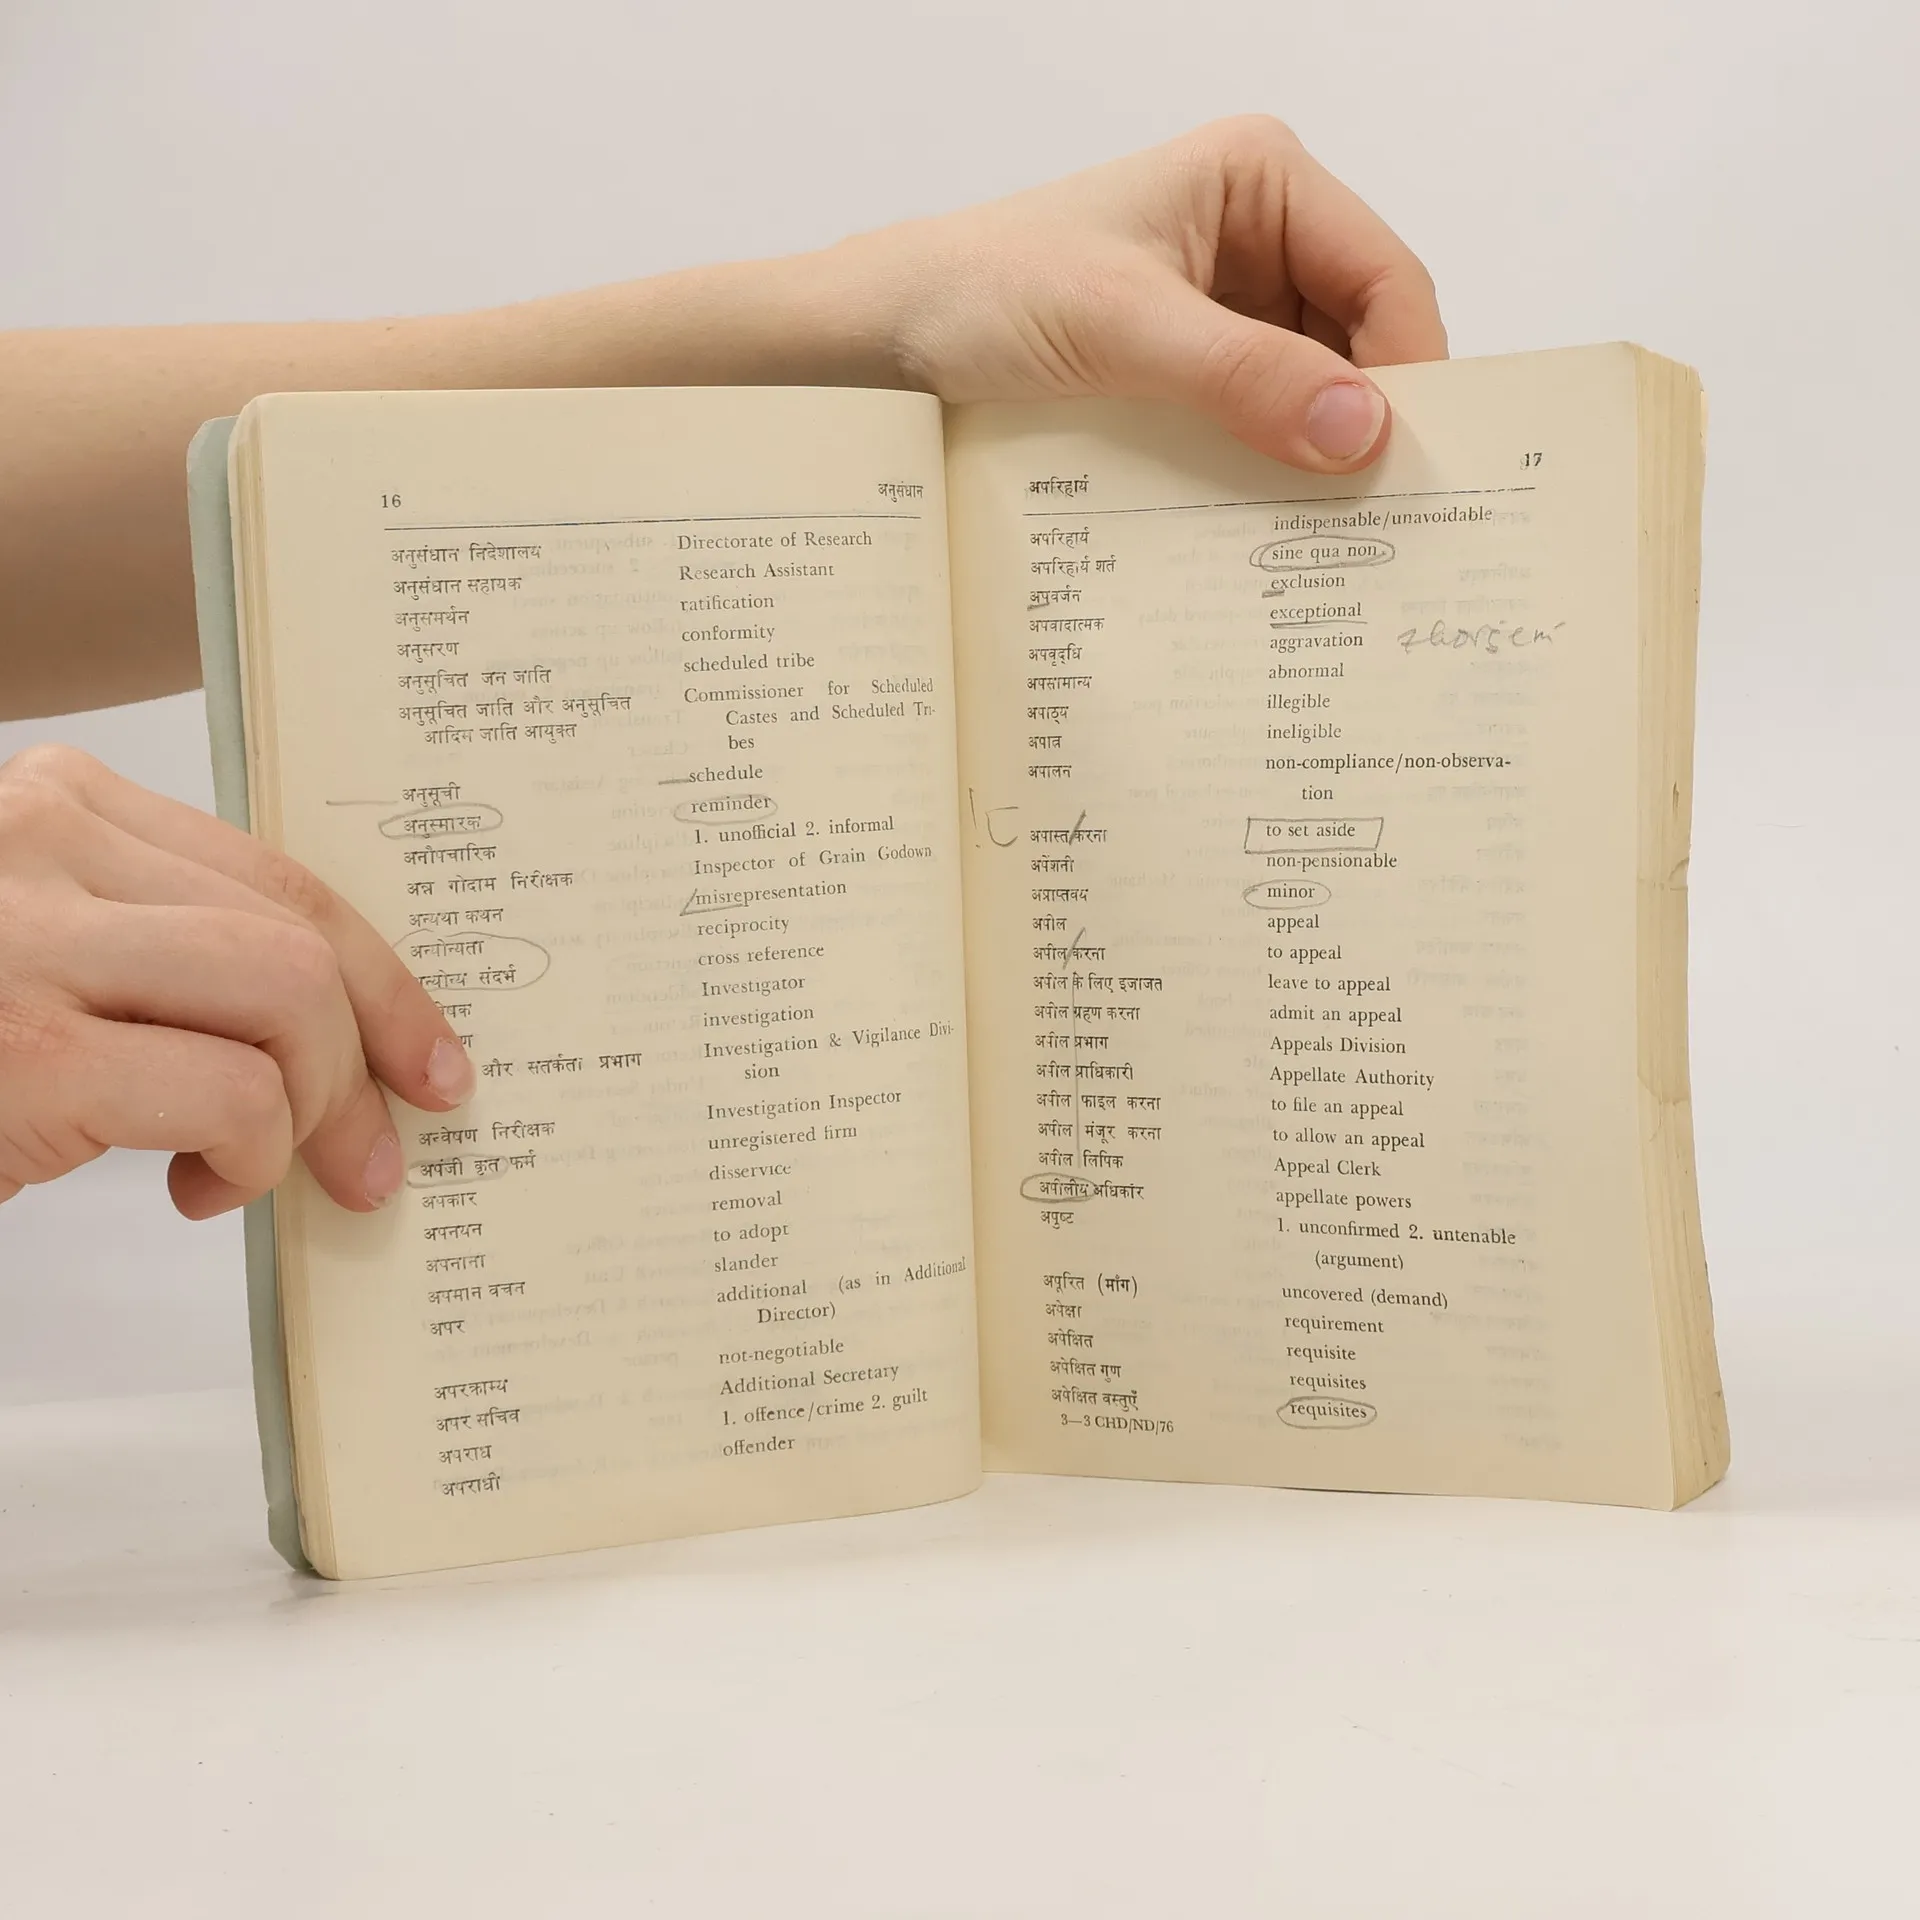 16 अनुसंधान
अनुसंधान निदेशालय Directorate of Research
अनुसंधान सहायक Research Assistant
अनुसमर्थन ratification
अनुसरण conformity
अनुसूचित जन जाति scheduled tribe
अनुसूचित जाति और अनुसूचित Commissioner for Scheduled
आदिम जाति आयुक्त Castes and Scheduled Tri-
bes
अनुसूची schedule
अनुस्मारक reminder
अनौपचारिक 1. unofficial 2. informal
अन्न गोदाम निरीक्षक Inspector of Grain Godown
अन्यथा कथन misrepresentation
अन्योन्यता reciprocity
अन्योन्य संदर्भ cross reference
Investigator
investigation
और सतर्कता प्रभाग Investigation & Vigilance Divi-
sion
अन्वेषण निरीक्षक Investigation Inspector
अपंजी कृत फर्म unregistered firm
अपकार disservice
अपनयन removal
अपनाना to adopt
अपमान वचन slander
अपर additional (as in Additional
Director)
अपरक्राम्य not-negotiable
अपर सचिव Additional Secretary
अपराध 1. offence/crime 2. guilt
अपराधी offender
अपरिहार्य 17
अपरिहार्य indispensable/unavoidable
अपरिहार्य शर्त sine qua non
अपवर्जन exclusion
अपवादात्मक exceptional
अपवृद्धि aggravation zhoršení
अपसामान्य abnormal
अपाठ्य illegible
अपात्र ineligible
अपालन non-compliance/non-observa-
tion
अपास्त करना to set aside
अपेंशनी non-pensionable
अप्राप्तवय minor
अपील appeal
अपील करना to appeal
अपील के लिए इजाजत leave to appeal
अपील ग्रहण करना admit an appeal
अपील प्रभाग Appeals Division
अपील प्राधिकारी Appellate Authority
अपील फाइल करना to file an appeal
अपील मंजूर करना to allow an appeal
अपील लिपिक Appeal Clerk
अपीलीय अधिकार appellate powers
अपुष्ट 1. unconfirmed 2. untenable
(argument)
अपूरित (माँग) uncovered (demand)
अपेक्षा requirement
अपेक्षित requisite
अपेक्षित गुण requisites
अपेक्षित वस्तुएँ requisites
3—3 CHD/ND/76